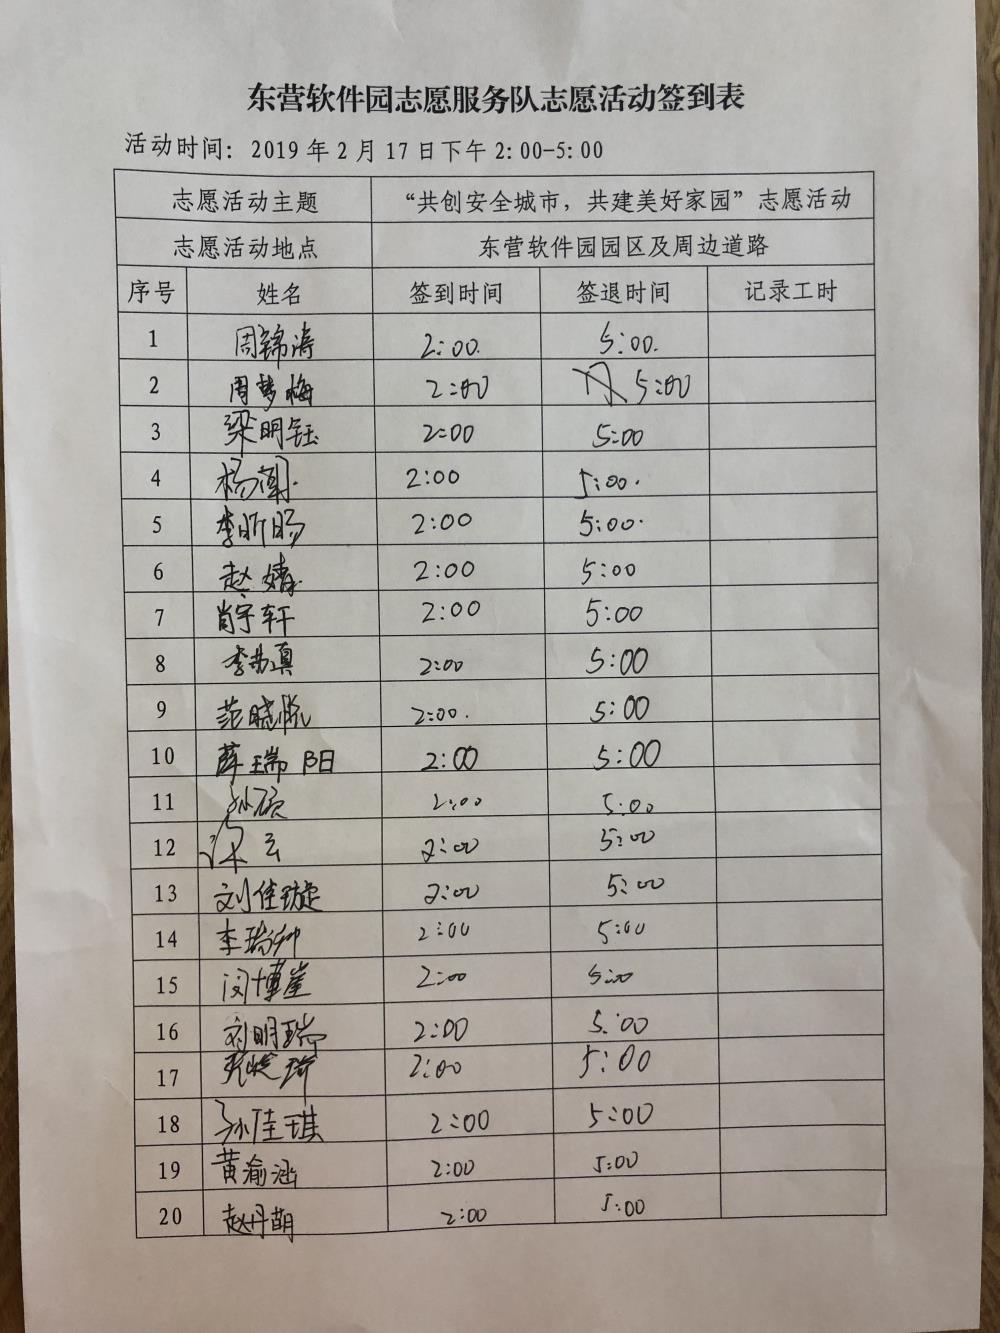 东营软件园志愿服务队志愿活动签到表
活动时间：2019年2月17日下午2:00-5:00
志愿活动主题 “共创安全城市，共建美好家园”志愿活动
志愿活动地点 东营软件园园区及周边道路
序号 姓名 签到时间 签退时间 记录工时
1 周锦涛 2:00. 5:00.
2 周梦梅 2:00 5:00
3 梁明钰 2:00 5:00
4 杨阔. 2:00 5:00.
5 李昕旸 2:00 5:00.
6 赵婧 2:00 5:00
7 肖宇轩 2:00 5:00
8 李 真 2:00 5:00
9 范晓悦 2:00. 5:00
10 薛瑞阳 2:00 5:00
11 孙硕 2:00 5:00
12 2:00 5:00
13 刘佳璇 2:00 5:00
14 李瑞 2:00 5:00
15 闵博崖 2:00 5:00
16 刘明瑞 2:00 5:00
17 张 琦 2:00 5:00
18 孙佳琪 2:00 5:00
19 黄渝涵 2:00 5:00
20 赵丹萌 2:00 5:00